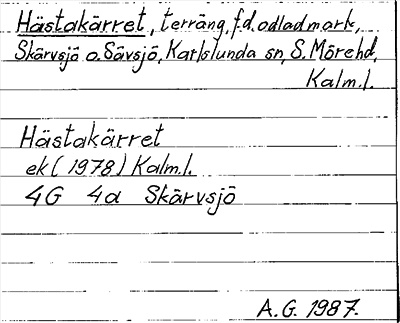 Hästakärret, terräng, f.d. odlad mark,
Skärvsjö o. Sävsjö, Karlslunda sn, S. Möre hd,
Kalm.l.
Hästakärret
ek (1978) Kalm.l.
4G 4a Skärvsjö
A.G. 1987.